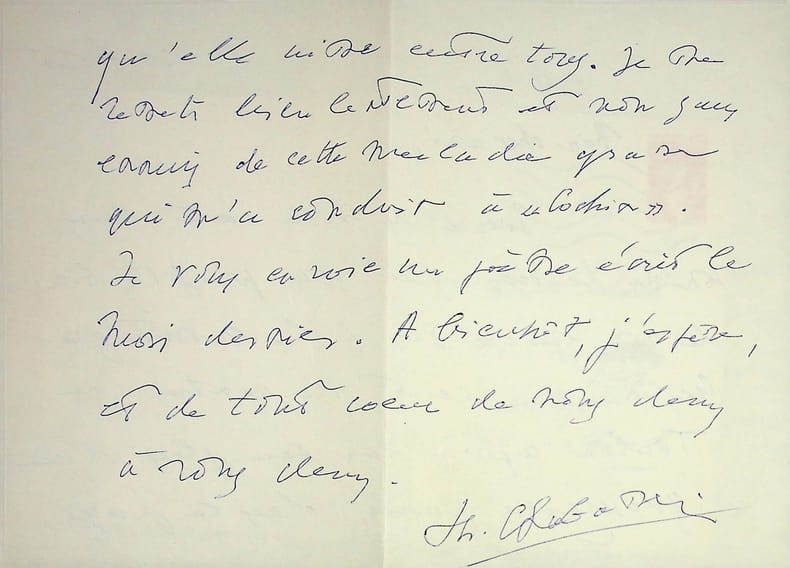 qu'elle entre tous. Je me
remets bien lentement et non sans
ennuis de cette maladie grave
qui m'a conduit à « Cochin ».
Je vous envoie un poème écrit le
mois dernier. A bientôt, j'espère,
et de tout coeur de nous deux
à vous deux.